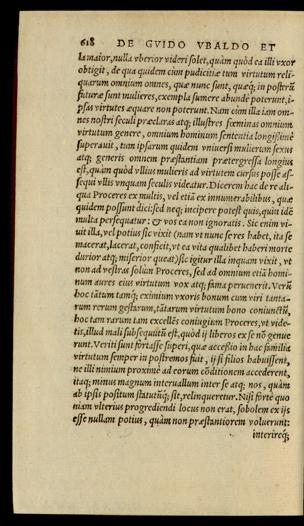 618 DE GVIDO VBALDO ET
la maior, nulla vberior videri solet, quàm quòd ea illi vxor
obtigit, de qua quidem cùm pudicitiæ tum virtutum reli-
quarum omnium omnes, quæ nunc sunt, quæq; in posterũ
futuræ sunt mulieres, exempla sumere abundè poterunt, i-
psas virtutes æquare non poterunt. Nam cùm illa iam om-
nes nostri seculi præclaras atq; illustres fœminas omnium
virtutum genere, omnium hominum sententia longissimè
superauit, tum ipsarum quidem vniuersi mulierum sexus
atq; generis omnem præstantiam prætergressa longius
est, quàm quòd vllius mulieris ad virtutem cursus posse as-
sequi vllis vnquam seculis videatur. Dicerem hac de re ali-
qua Proceres ex multis, vel etiã ex innumerabilibus, quæ
quidem possunt dici: sed neq; incipere potest quis, quin idẽ
multa persequatur: & vos ea non ignoratis. Sic enim vi-
uit illa, vel potius sic vixit (nam vt nunc se res habet, ita se
macerat, lacerat, conficit, vt ea vita qualibet haberi morte
durior atq; miserior queat) sic igitur illa inquam vixit, vt
non ad vestras solùm Proceres, sed ad omnium etiã homi-
num aures eius virtutum vox atq; fama peruenerit. Verũ
hoc tãtum tamq; eximium vxoris bonum cum viri tanta-
rum rerum gestarum, tãtarum virtutum bono coniunctũ,
hoc tam rarum tam excellẽs coniugium Proceres, vt vide-
tis, illud mali subsequutũ est, quòd ij liberos ex se nõ genue
runt. Veriti sunt fortasse superi, quæ accessio in hac familia
virtutum semper in postremos fuit, ij si filios habuissent,
ne illi nimium proximè ad eorum conditionem accederent,
itaq; minus magnum interuallum inter se atq; nos, quàm
ab ipsis positum statutũq; sit, relinqueretur. Nisi fortè quo
niam vlterius progrediendi locus non erat, sobolem ex ijs
esse nullam potius, quàm non præstantiorem voluerunt:
interireq́;